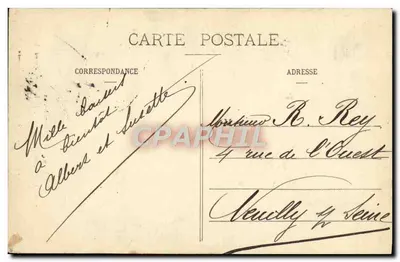 CARTE POSTALE.
CORRESPONDANCE
ADRESSE
Mille baisers
à bientôt
Albert et Suzette
Monsieur R. Rey
4 rue de l'Ouest
Neuilly s/ Seine
CPAPHIL